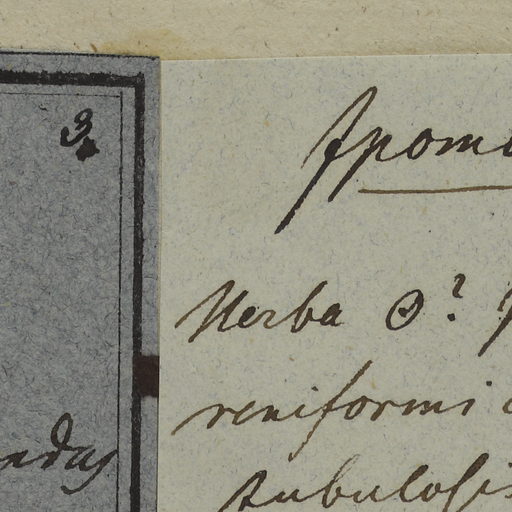 3.
Ipomo
Herba ⊙?
reniformi
tubulosis